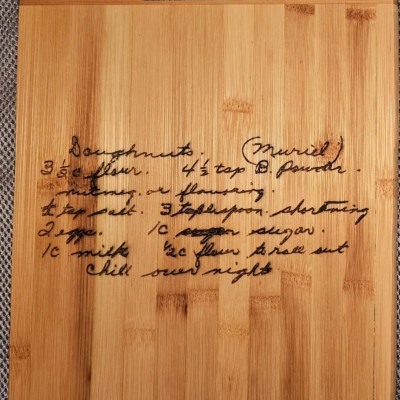 Doughnuts. (Muriel)
3 1/3 c flour. 4 1/2 tsp B Powder.
nutmeg or flavouring.
tsp salt. 3 tablespoon shortening
2 eggs. 1C sugar.
1C milk ½c flour to roll out
chill over night